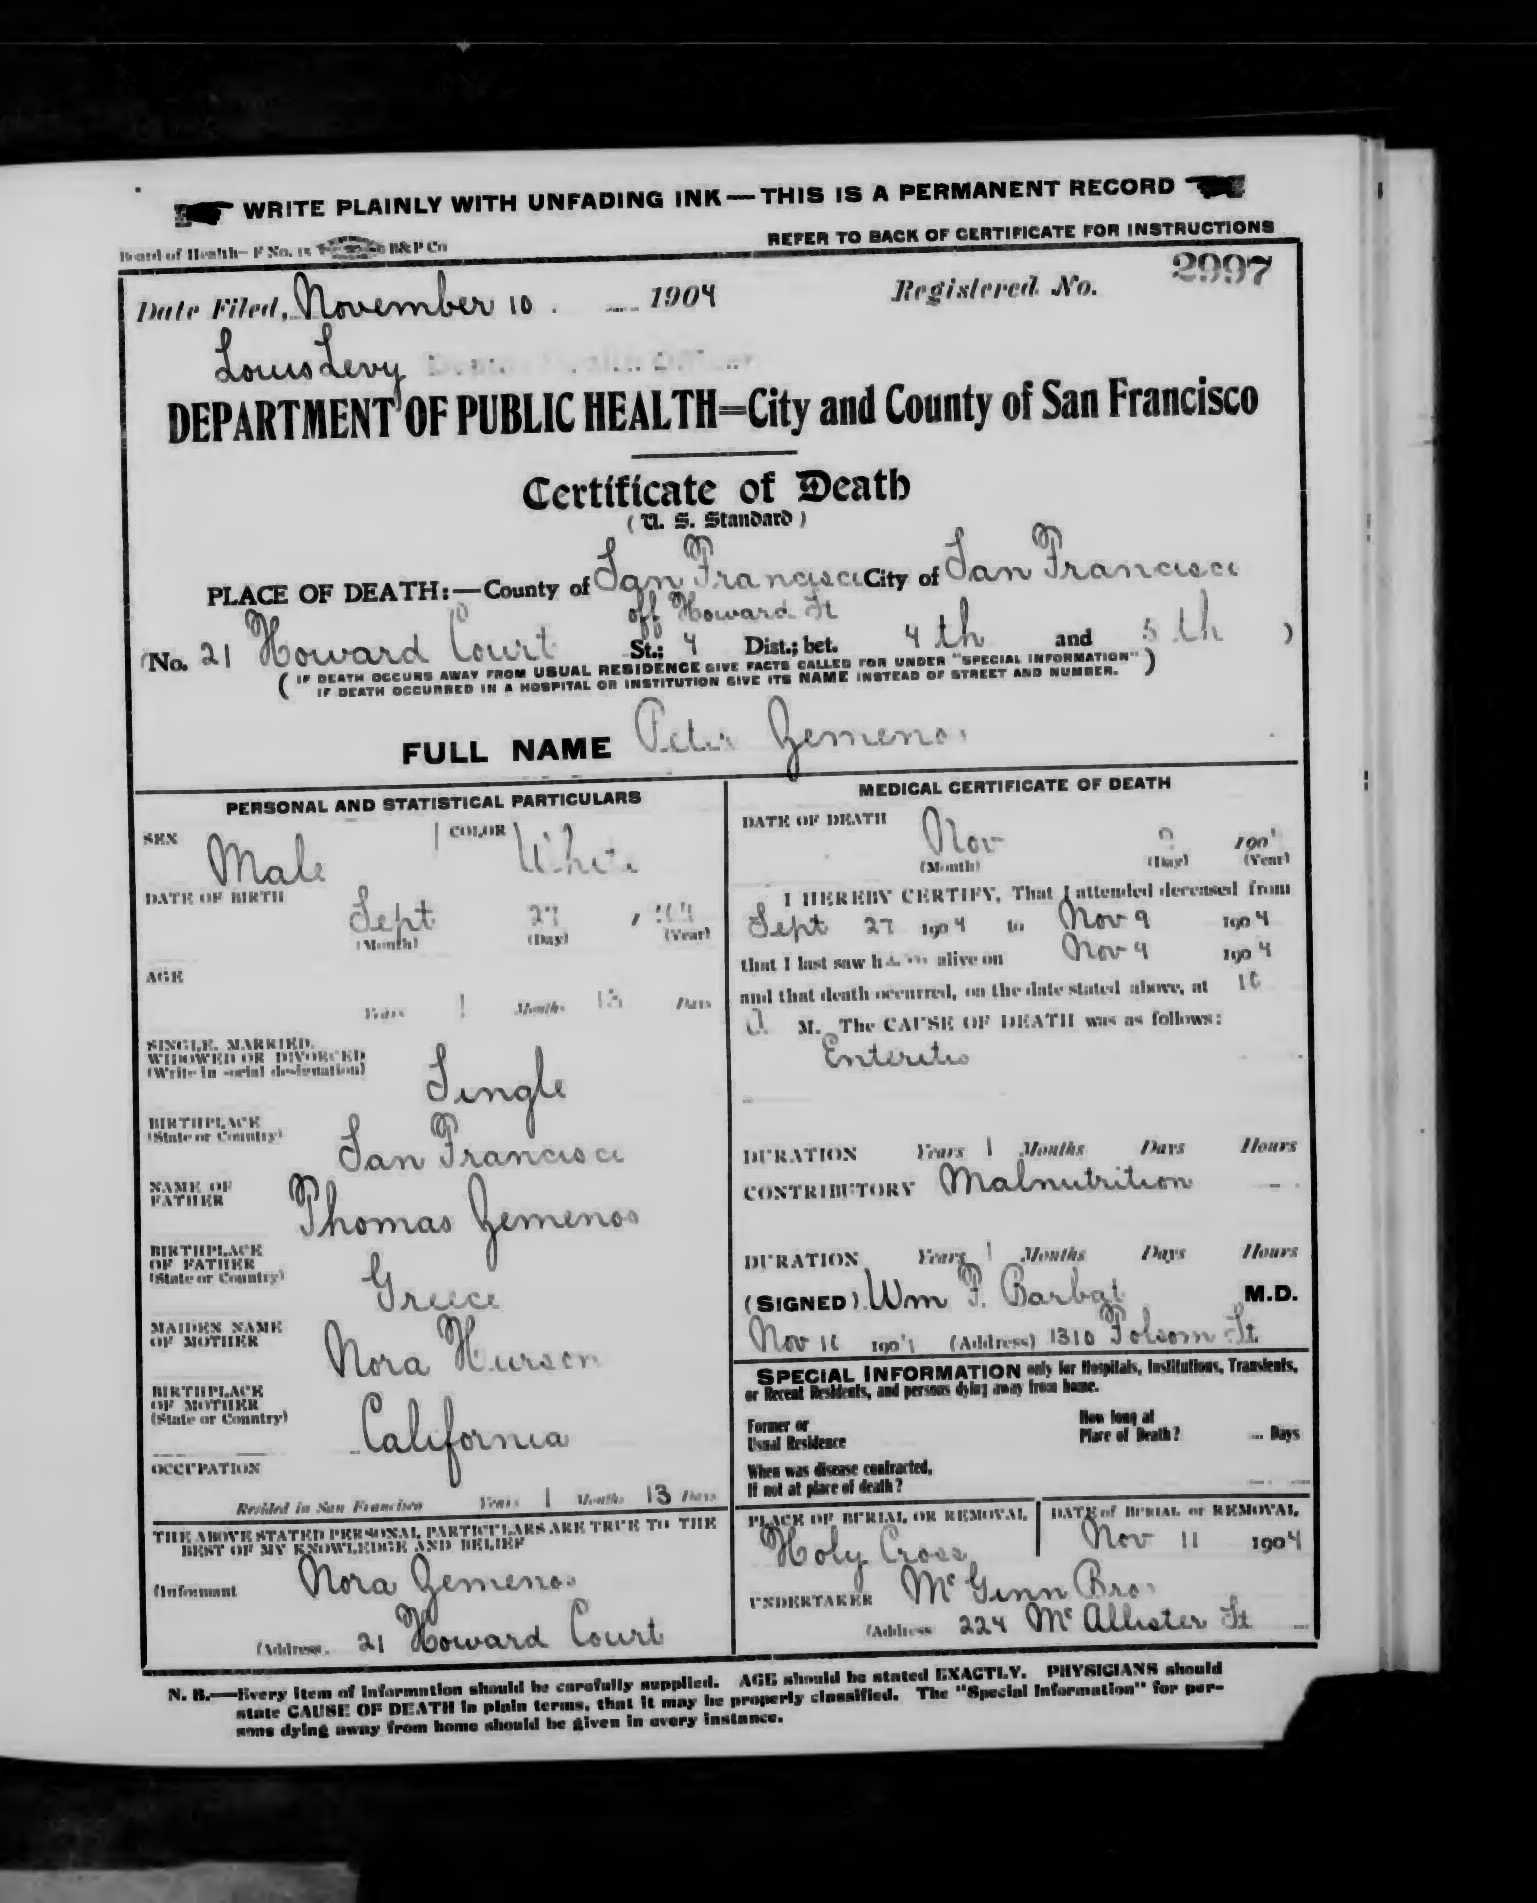 WRITE PLAINLY WITH UNFADING INK — THIS IS A PERMANENT RECORD
Board of Health— F No. 15 B&P Co
REFER TO BACK OF CERTIFICATE FOR INSTRUCTIONS
Date Filed, November 10 1904 Registered No. 2997
Louis Levy
DEPARTMENT OF PUBLIC HEALTH=City and County of San Francisco
Certificate of Death
(U. S. Standard)
PLACE OF DEATH:—County of San Francisco City of San Francisco
off Howard St
(No. 21 Howard Court St.; 4 Dist.; bet. 4th and 5th )
( IF DEATH OCCURS AWAY FROM USUAL RESIDENCE GIVE FACTS CALLED FOR UNDER "SPECIAL INFORMATION" )
IF DEATH OCCURRED IN A HOSPITAL OR INSTITUTION GIVE ITS NAME INSTEAD OF STREET AND NUMBER.
FULL NAME Peter Zemenos
PERSONAL AND STATISTICAL PARTICULARS
SEX Male COLOR White
DATE OF BIRTH
Sept 27
(Month) (Day) (Year)
AGE
Years 1 Months 13 Days
SINGLE, MARRIED,
WIDOWED OR DIVORCED
(Write in social designation)
Single
BIRTHPLACE
(State or Country)
San Francisco
NAME OF
FATHER
Thomas Zemenos
BIRTHPLACE
OF FATHER
(State or Country)
Greece
MAIDEN NAME
OF MOTHER
Nora
BIRTHPLACE
OF MOTHER
(State or Country)
California
OCCUPATION
Resided in San Francisco Years 1 Months 13 Days
THE ABOVE STATED PERSONAL PARTICULARS ARE TRUE TO THE
BEST OF MY KNOWLEDGE AND BELIEF
(Informant Nora Zemenos
(Address. 21 Howard Court
MEDICAL CERTIFICATE OF DEATH
DATE OF DEATH
Nov 190
(Month) (Day) (Year)
I HEREBY CERTIFY, That I attended deceased from
Sept 27 1904 to Nov 9 1904
that I last saw him alive on Nov 9 1904
and that death occurred, on the date stated above, at 10
A. M. The CAUSE OF DEATH was as follows:
Enteritis
DURATION Years 1 Months Days Hours
CONTRIBUTORY Malnutrition
DURATION Years 1 Months Days Hours
(SIGNED) Wm F. Barbat M.D.
Nov 10 1904 (Address) 1310 Folsom St
SPECIAL INFORMATION only for Hospitals, Institutions, Transients,
or Recent Residents, and persons dying away from home.
Former or
Usual Residence
How long at
Place of Death? Days
When was disease contracted,
If not at place of death?
PLACE OF BURIAL OR REMOVAL
Holy Cross
DATE of BURIAL or REMOVAL
Nov 11 1904
UNDERTAKER McGinn Bros
(Address 224 McAllister St
N. B.—Every item of information should be carefully supplied. AGE should be stated EXACTLY. PHYSICIANS should
state CAUSE OF DEATH in plain terms, that it may be properly classified. The "Special Information" for per-
sons dying away from home should be given in every instance.